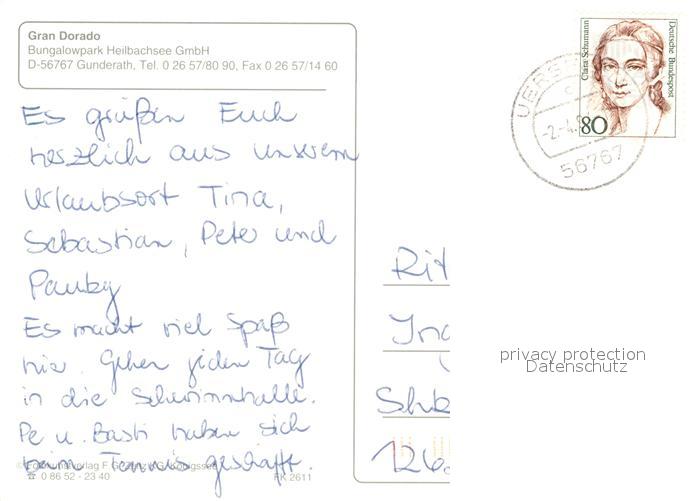 Gran Dorado
Bungalowpark Heilbachsee GmbH
D-56767 Gunderath, Tel. 0 26 57/80 90, Fax 0 26 57/14 60
Clara Schumann
Deutsche Bundespost
80
UERS
-2.-4.
56767
Es grüßen Euch
herzlich aus unserem
Urlaubsort Tina,
Sebastian, Peter und
Pauby
Es macht viel Spaß
hier. Gehen jeden Tag
in die Schwimmhalle.
Pe u. Basti haben sich
beim Tennis geschafft.
Rit
Ing
126
privacy protection
Datenschutz
☎ 0 86 52 - 23 40
FK 2611